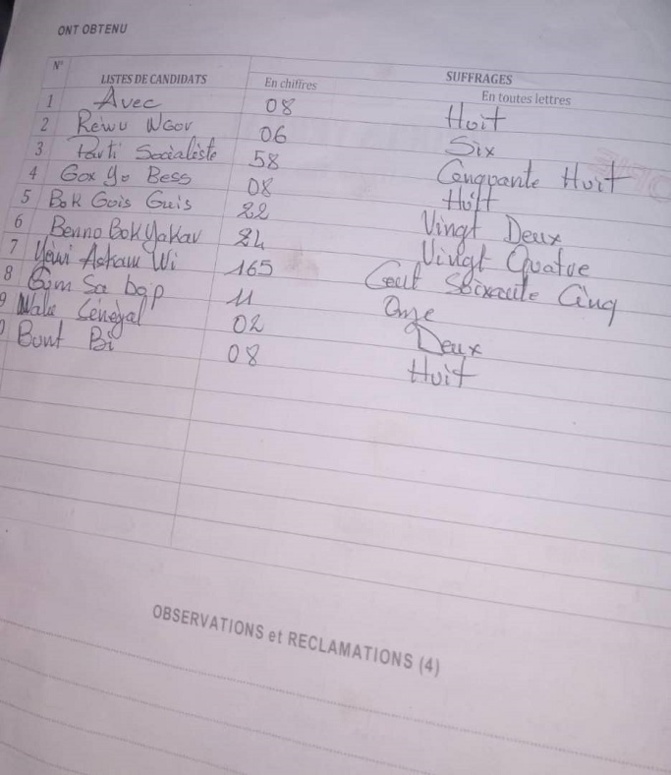 ONT OBTENU
N° LISTES DE CANDIDATS SUFFRAGES
En chiffres En toutes lettres
1 Avec 08 Huit
2 Rewu Ngor 06 Six
3 Parti Socialiste 58 Cinquante Huit
4 Gox Yo Bess 08 Huit
5 Bok Gois Guis 22 Vingt Deux
6 Benno Bok Yakar 24 Vingt Quatre
7 Yewi Askan Wi 165 Cent Soixante Cinq
8 Gum Sa bop 11 Onze
9 Wale Sénégal 02 Deux
0 Bunt Bi 08 Huit
OBSERVATIONS et RECLAMATIONS (4)